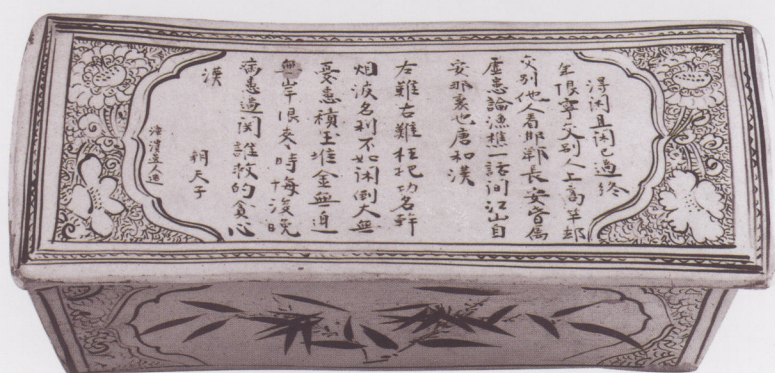 得闲且闲已過終
年恨寧交别人上高竿却
交别他人看邯鄲長安皆爲
虛患論漁樵一話间江山自
安那裏也唐和漢
左難右難枉把功名幹
烟波名利不如闲倒大無
憂患積玉堆金無邊
無岸限來時悔後晚
病患過関誰救的貪心
漢
朝天子
漳濱逸人造